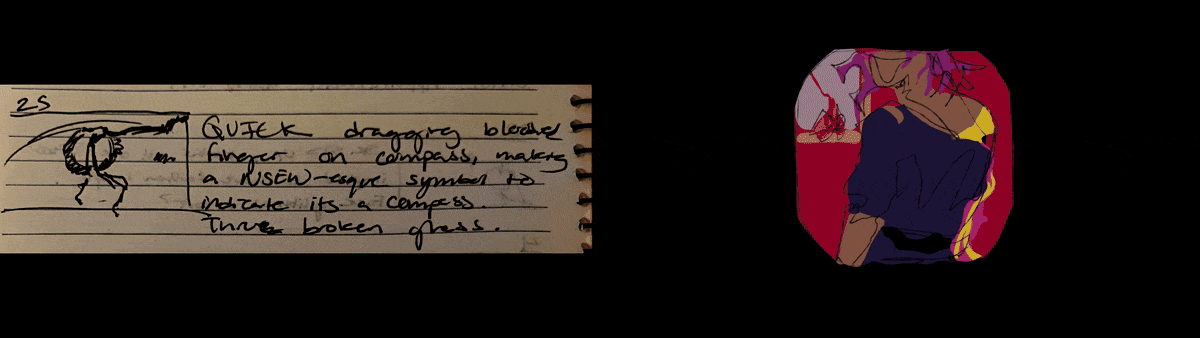 2S
QUICK dragging bloodied
finger on compass, making
a NSEW-esque symbol to
indicate its a compass.
Thru broken glass.